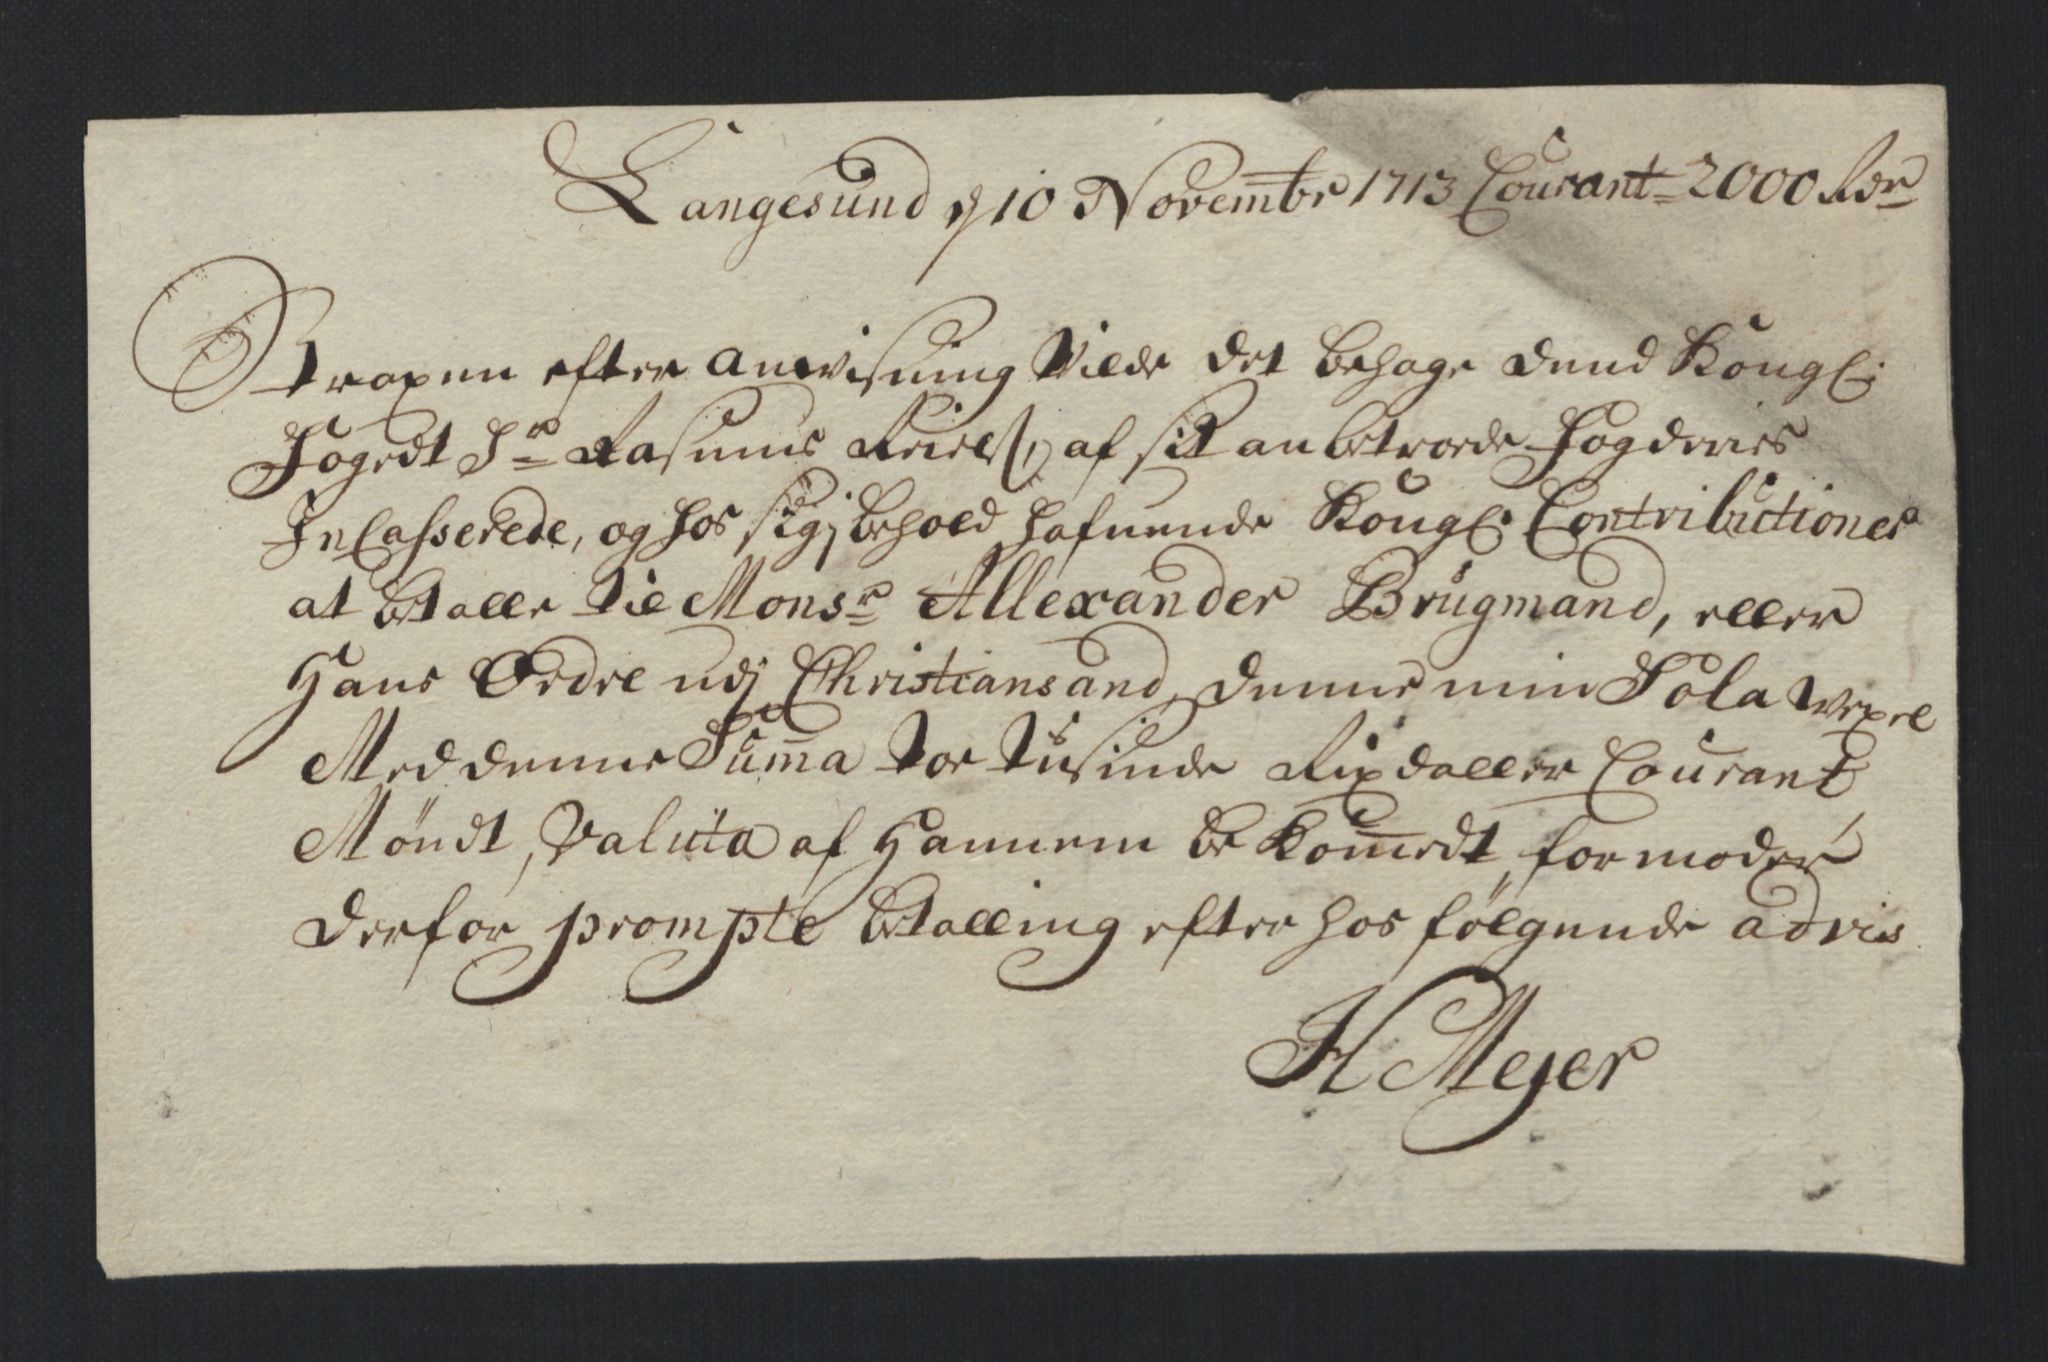 Langesund d 10 Novembr 1713 Courant 2000 Rdr
efter anvisning Vilde det behage dend Kongl:
Fogedt Sr Rasmus af sit anbetroede Fogderies
InCasserede, og hos sig j behold hafuende Kongl: Contributioner
at betalle til Monsr Allexander Brügmand, eller
Hans Ordre udj Christiansand, denne min Sola Vexel
Med denne Summa Toe Tusinde Rixdaller Courant
Möndt, Valuta af Hannem bekommedt, formoder
derfor prompte betalling efter hosfölgende advis
H Mejer